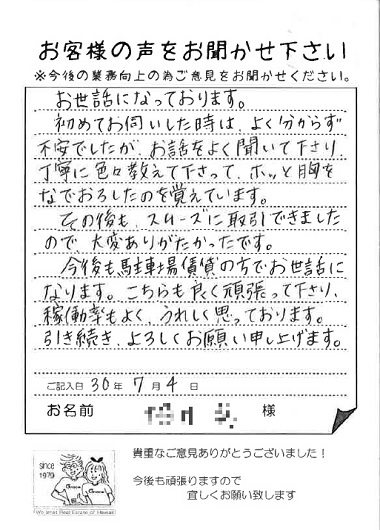 お客様の声をお聞かせ下さい
※今後の業務向上の為ご意見をお聞かせください。
お世話になっております。
初めてお伺いした時は、よく分からず
不安でしたが、お話をよく聞いて下さり、
丁寧に色々教えて下さって、ホッと胸を
なでおろしたのを覚えています。
その後も、スムーズに取引できました
ので、大変ありがたかったです。
今後も駐車場賃貸の方でお世話に
なります。こちらも良く頑張って下さり、
稼働率もよく、うれしく思っております。
引き続き、よろしくお願い申し上げます。
ご記入日 30年 7月 4日
お名前 様
since
1979
貴重なご意見ありがとうございました！
今後も頑張りますので
宜しくお願い致します